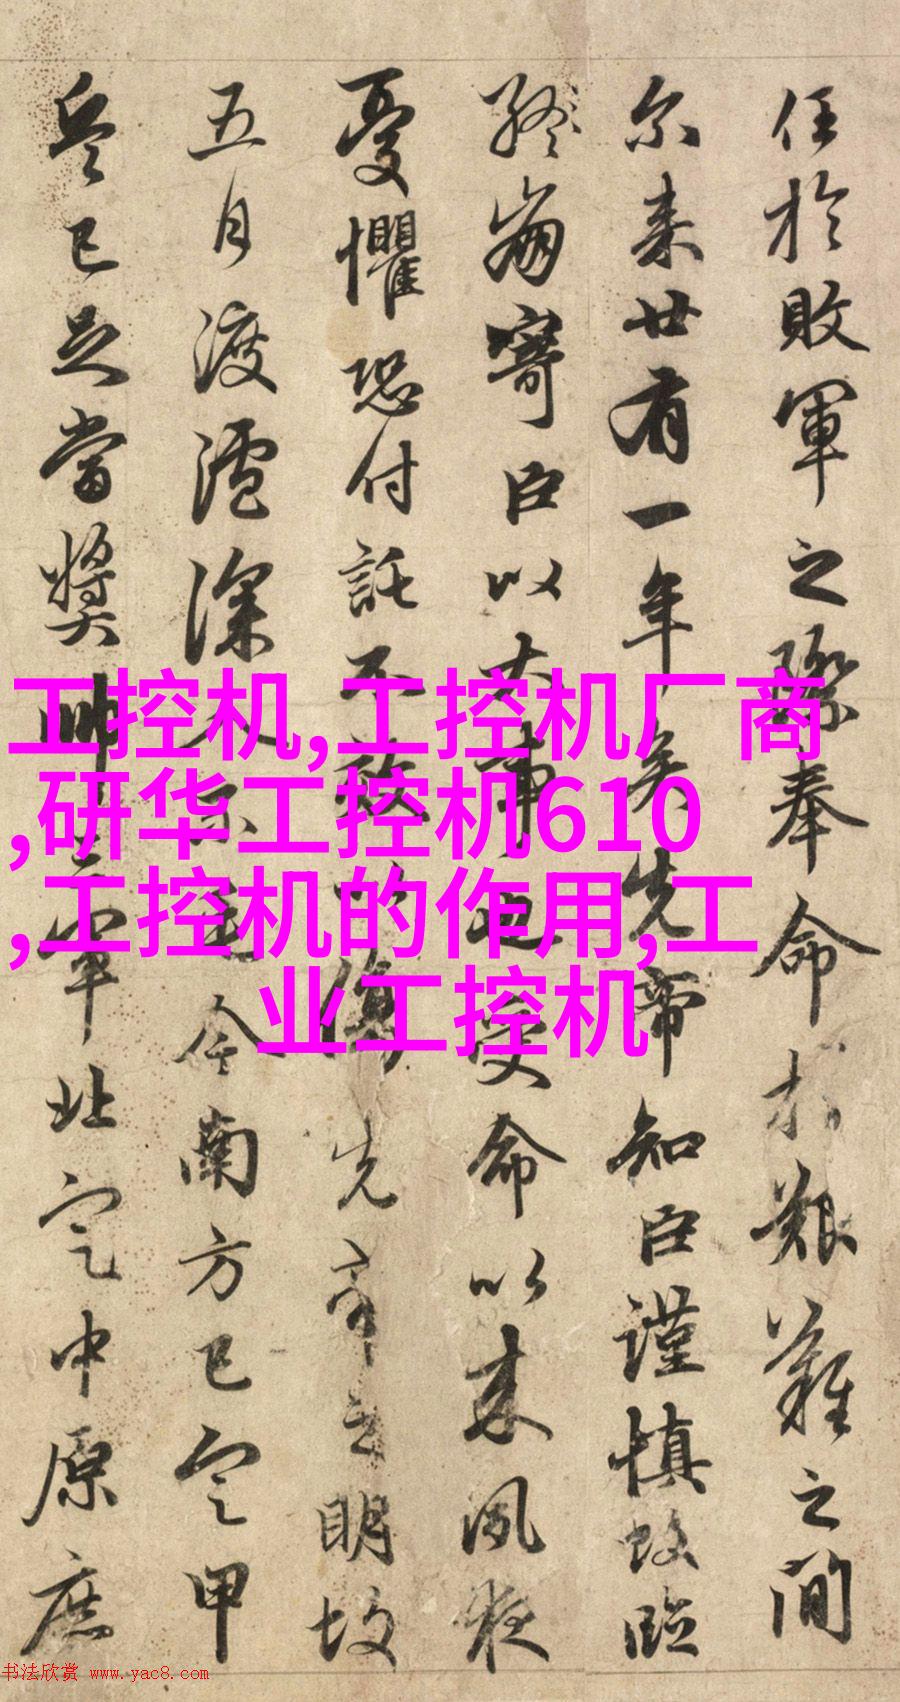 任於敗軍之際奉命於艱難之間
尔来廿有一年矣先帝知臣謹慎故臨
終崩寄臣以大事也受命以来夙夜
憂懼恐付託不效以傷先帝之明故
五月渡瀘深入不毛今南方已定甲
兵已足當獎帥三軍北定中原庶
工控机,工控机厂商
,研华工控机610
,工控机的作用,工
业工控机
书法欣赏 www.yac8.com